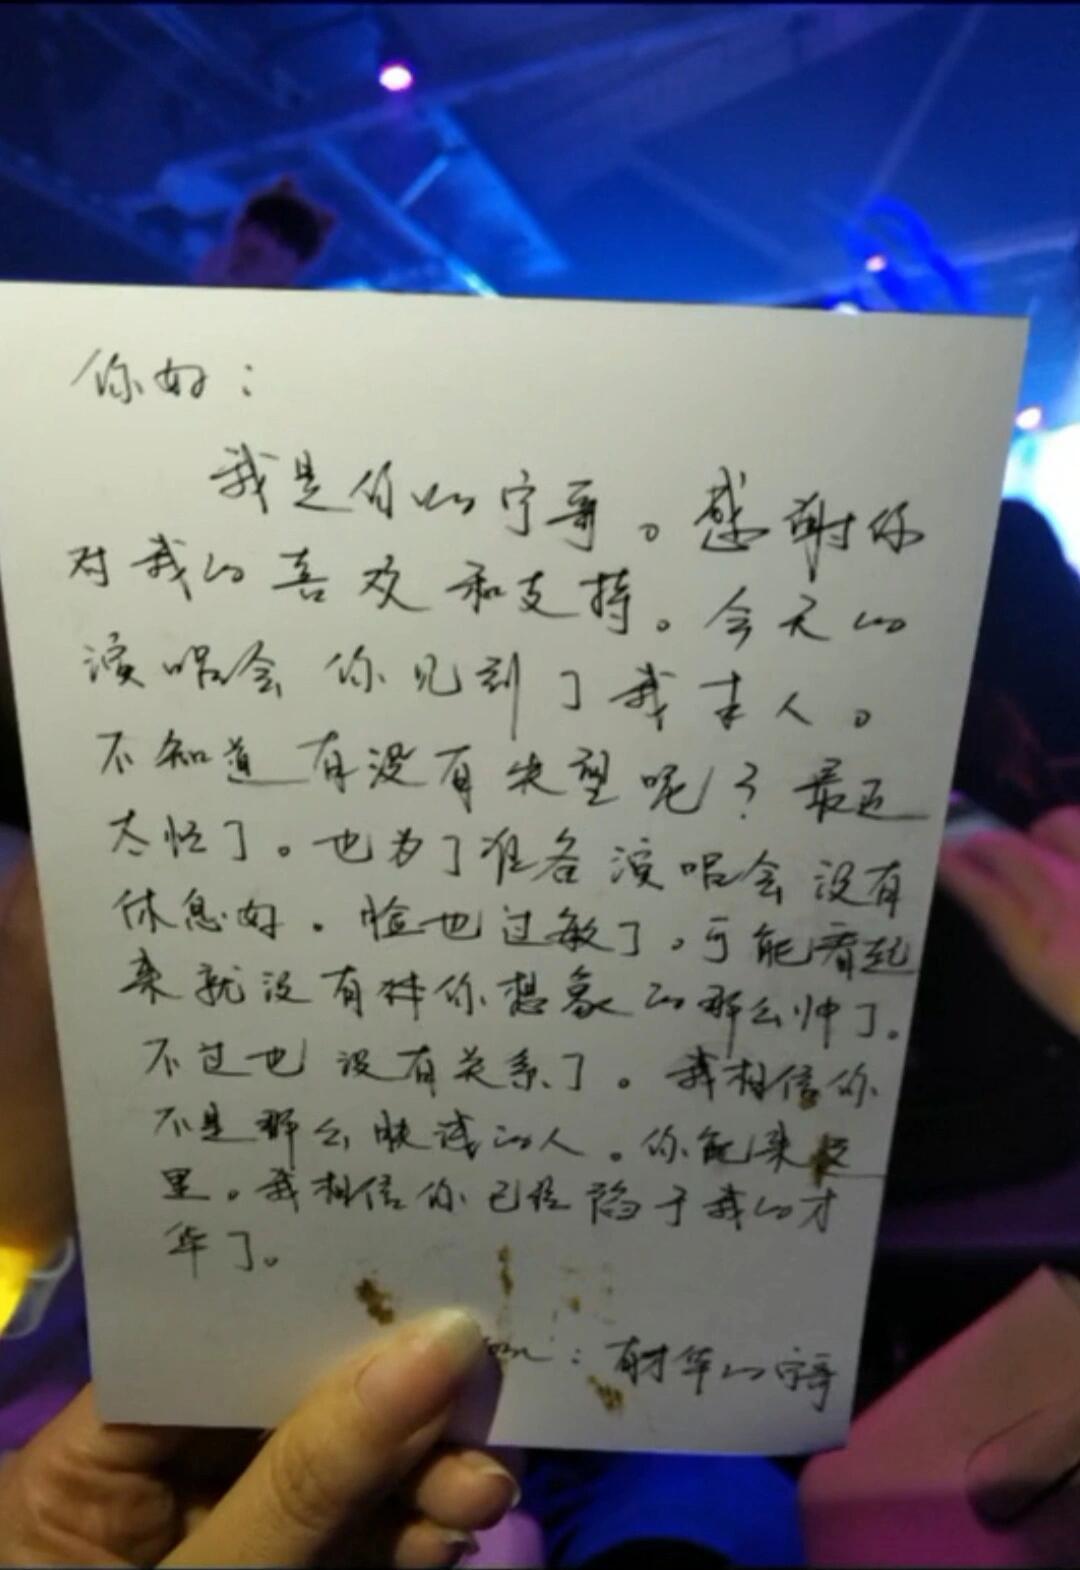 你好：
我是你的宁哥。感谢你
对我的喜欢和支持。今天的
演唱会你见到了我本人。
不知道有没有失望呢？最近
太忙了。也为了准备演唱会没有
休息好。脸也过敏了。可能看起
来就没有材你想象的那么帅了。
不过也没有关系了。我相信你
不是那么肤浅的人。你能来这
里。我相信你已经陷于我的才
华了。
：有才华的宁哥